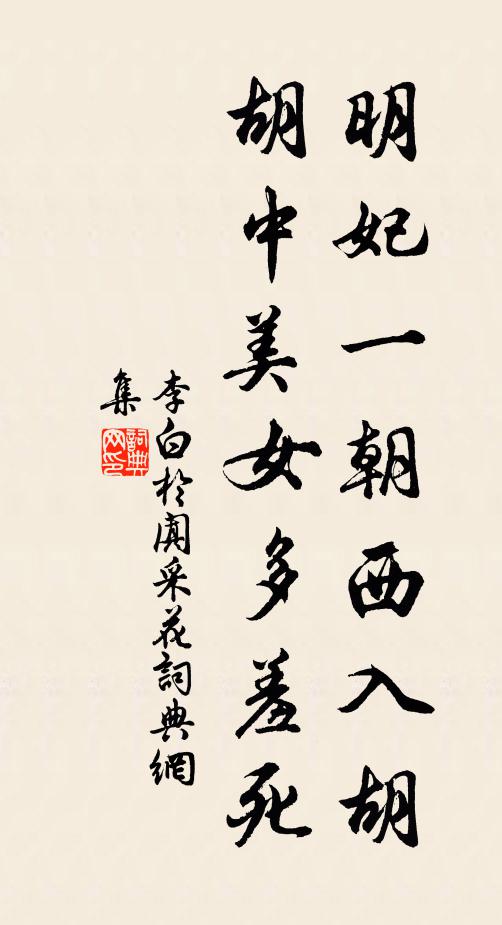 明妃一朝西入胡
胡中美女多羞死
李白於闐采花詞典網
集
詞典
网印